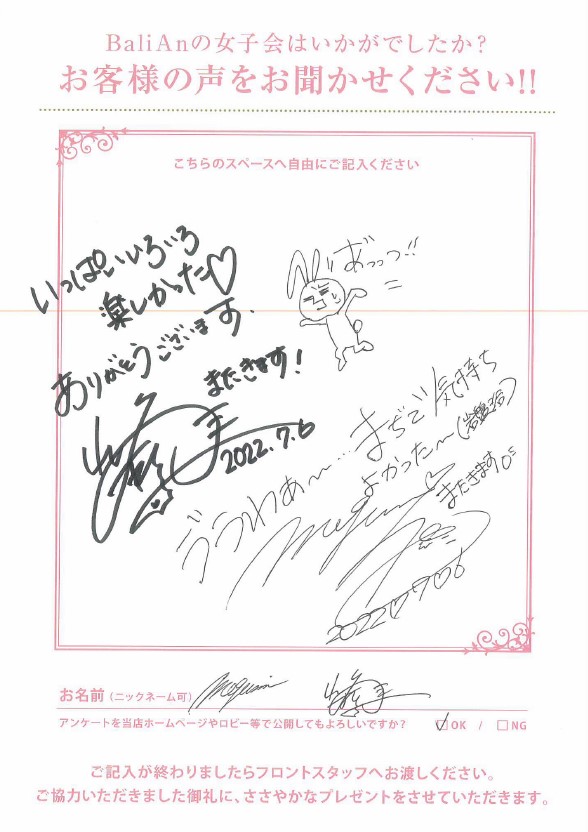 BaliAnの女子会はいかがでしたか？
お客様の声をお聞かせください!!
こちらのスペースへ自由にご記入ください
いっぱいいろいろ
楽しかった♡
ありがとうございます.
またきます！
2022.7.6
ばっっつ!!
うぅわぁ〜…まぢで気持ち
よかった〜(岩盤浴)
またきます
2022♡7♡6
お名前（ニックネーム可）
アンケートを当店ホームページやロビー等で公開してもよろしいですか？ ☑OK / □NG
ご記入が終わりましたらフロントスタッフへお渡しください。
ご協力いただきました御礼に、ささやかなプレゼントをさせていただきます。